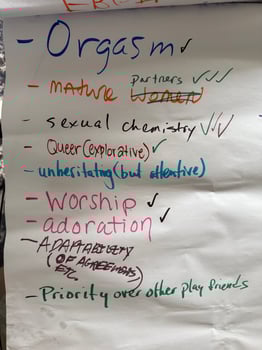 - Orgasm ✓
partners ✓✓✓
- MATURE Women
- sexual chemistry ✓✓✓
- Queer (explorative) ✓
- unheritating (but attentive)
- Worship ✓
- adoration ✓
- ADAPTABILITY
(OF AGREEMENTS
ETC.)
- Priority over other play friends